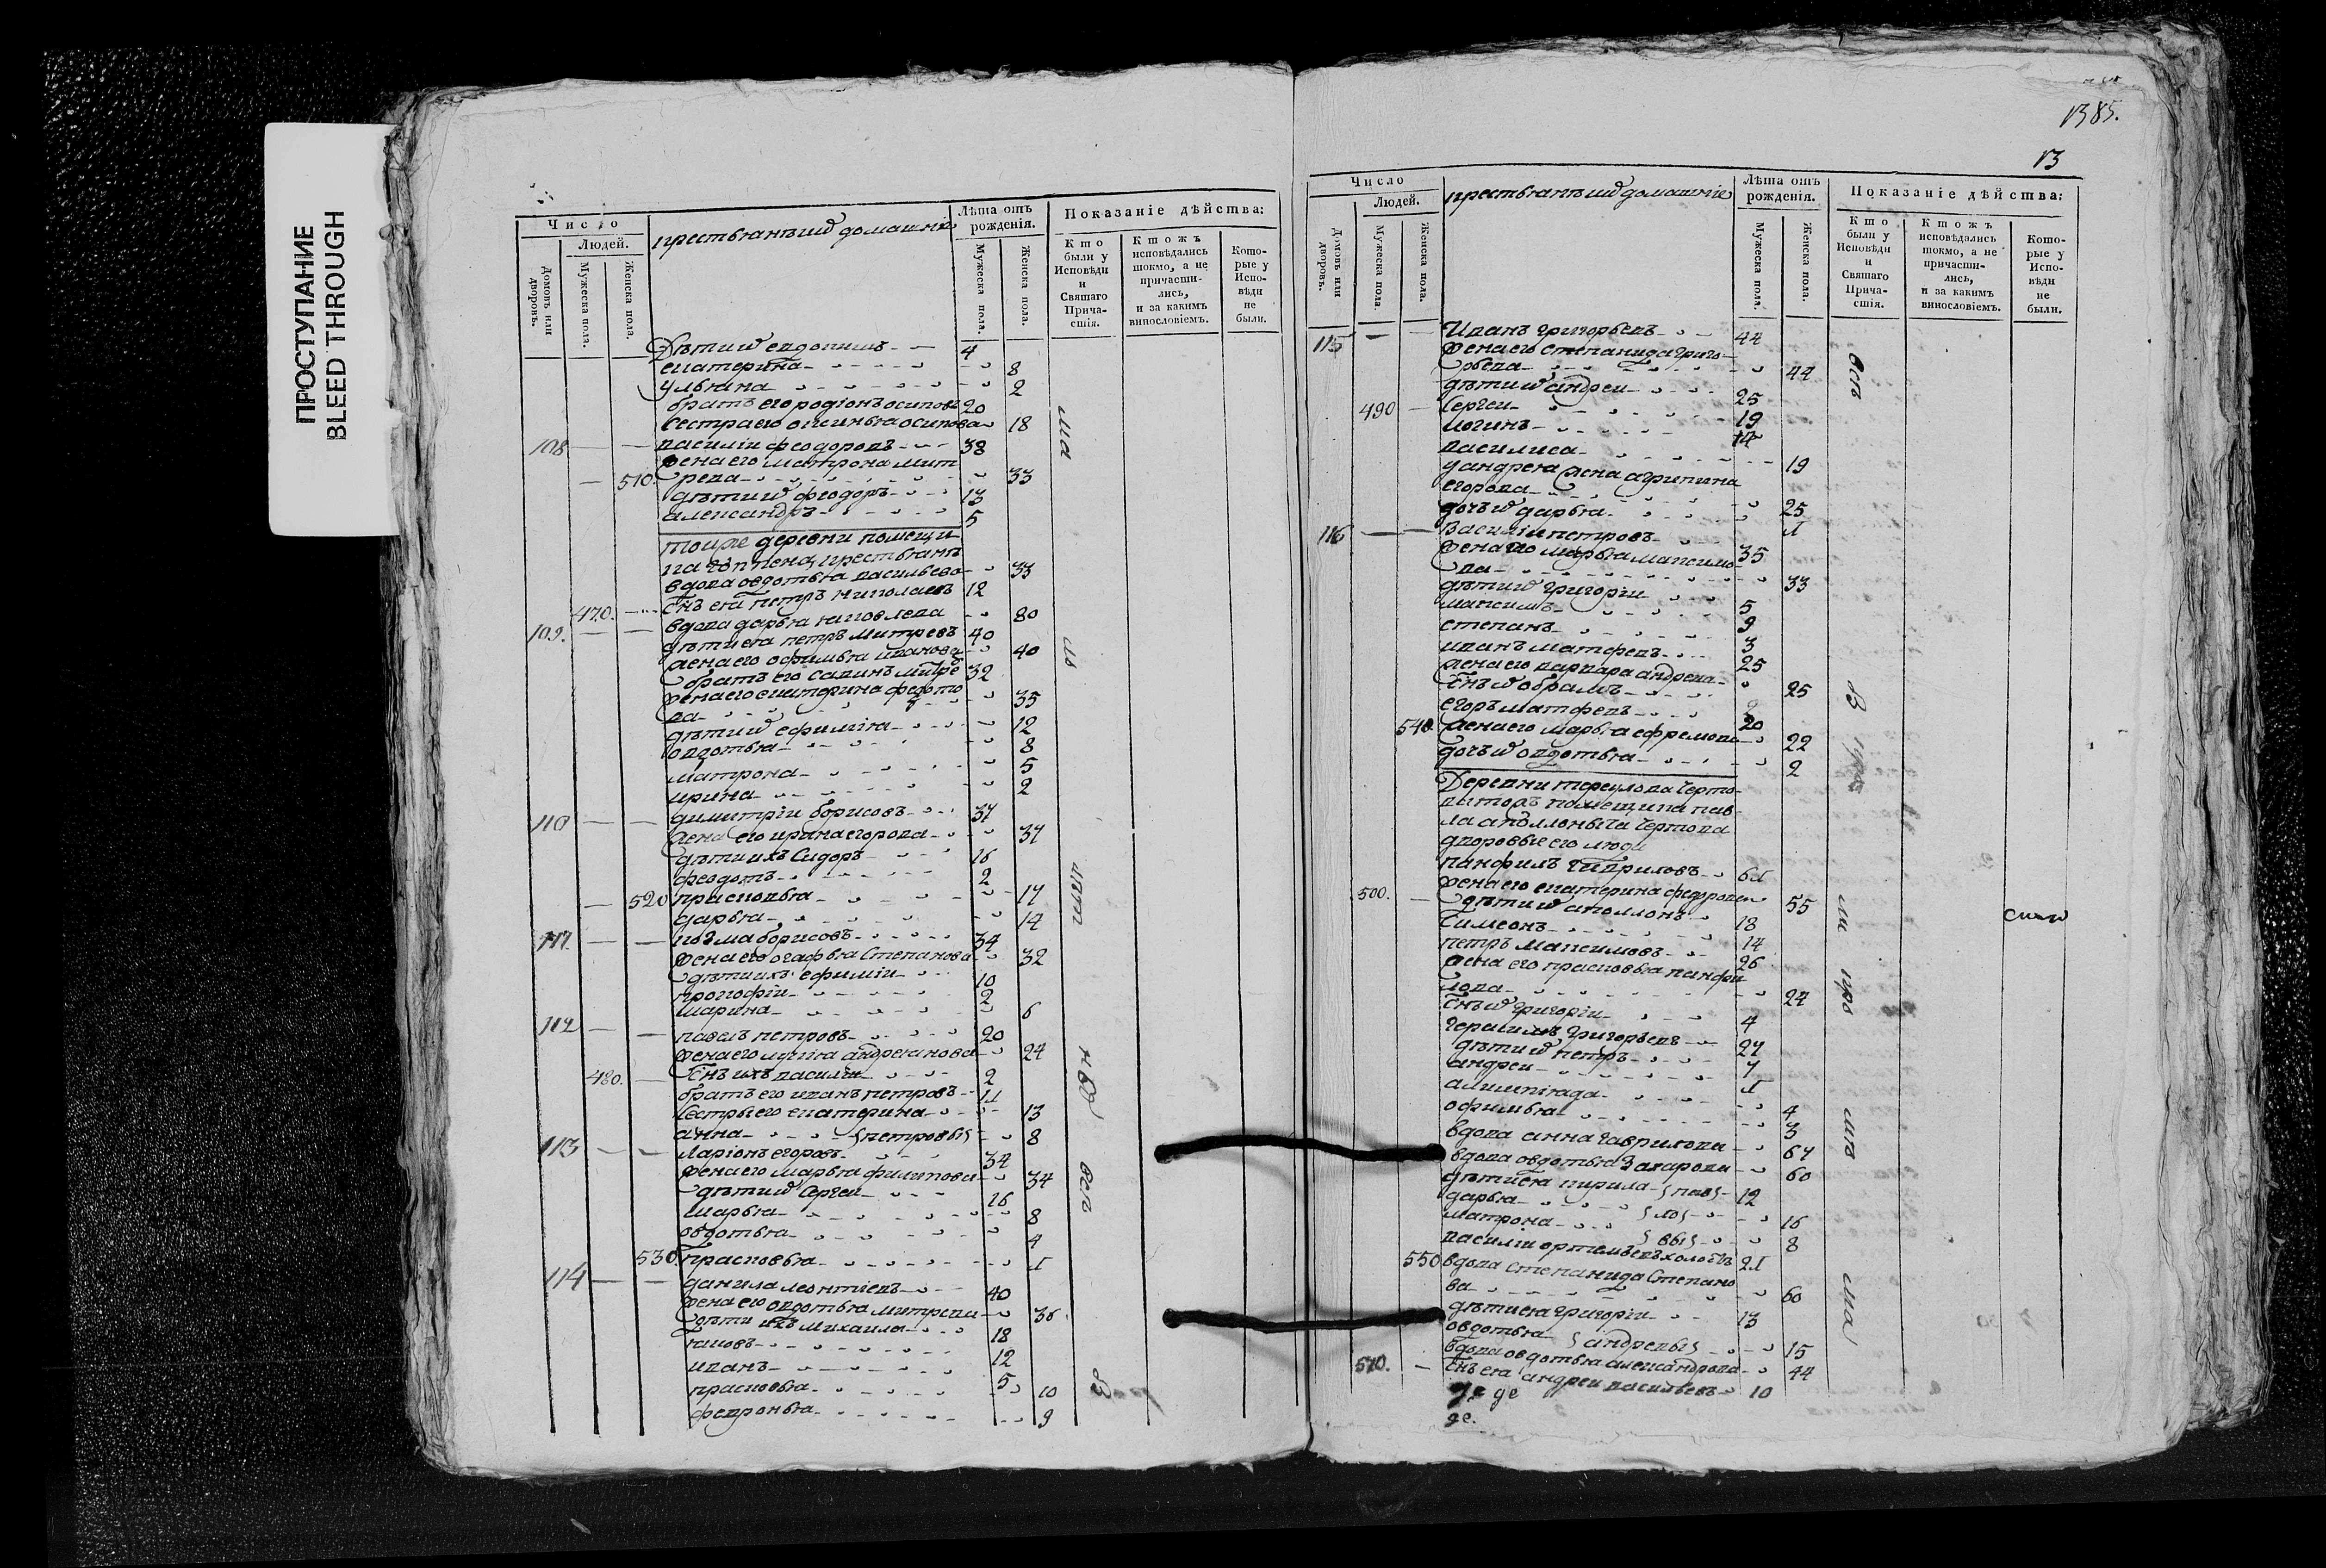 ПРОСТУПАНИЕ
BLEED THROUGH
Число
Людей.
Домовъ или дворовъ.
Мужеска пола.
Женска пола.
крестьянъ и их домашние
Лѣта отъ рожденія.
Мужеска пола.
Женска пола.
Показаніе дѣйства:
Кто были у Исповѣди и Святаго Прича-стія.
Ктожъ исповѣдались токмо, а не причасти-лись, и за какимъ винословіемъ.
Кото-рые у Испо-вѣди не были.
4
екатерина 8
ульяна 2
братъ его родіонъ осиповъ 20
сестра его аксинья осипова 18
108 василіи феодоровъ 38
жена его матрона мит
510 рева 33
дѣти их феодоръ 13
александръ 5
тои же деревни помещи
вдова овдотья васильева 33
470. петръ николаевъ 12
109. вдова дарья яковлева 80
дѣти ея петръ митревъ 40
жена его офимья иванова 40
братъ его савинъ митре 32
жена его екатерина федото
ва 35
дѣти их ефимія 12
овдотья 8
матрона 5
ирина 2
110 димитріи борисовъ 37
жена его ирина егорова 37
дѣти ихъ сидоръ 16
феодотъ 2
520 прасковья 17
дарья 14
111. козма борисовъ 34
жена его огафья степанова 32
дѣти ихъ ефиміи 10
прокофіи 2
марина 6
112 павелъ петровъ 20
жена его лукія андреянова 24
480. снъ ихъ василіи 2
братъ его иванъ петровъ 11
сестры его екатерина 13
анна петровы 8
113 ларіонъ егоровъ 34
жена его марья филипова 34
дѣти их сергеи 16
марья 8
овдотья 4
530. прасковья 1
114 данила леонтіевъ 40
жена его овдотья митрева 36
дѣти ихъ михаила 18
яковъ 12
иванъ 5
прасковья 10
февронья 9
1385.
13
Число
Людей.
Домовъ или дворовъ.
Мужеска пола.
Женска пола.
крестьянъ и их домашніе
Лѣта отъ рожденія.
Мужеска пола.
Женска пола.
Показаніе дѣйства:
Кто были у Исповѣди и Святаго Прича-стія.
Ктожъ исповѣдались токмо, а не причасти-лись, и за какимъ винословіемъ.
Кото-рые у Испо-вѣди не были.
115 Иванъ григорьевъ 44
жена его степанида григо
рьева 44
дѣти их андреи 25
490 сергеи 19
логинъ 14
василиса 19
у андрея жена агрипина
егорова 25
дочь их дарья 1
116 Василіи петровъ 35
жена его марья максимо
ва 33
дѣти их григорги 5
максимъ 9
степанъ 3
иванъ матфевъ 25
жена его варвара андрева 25
снъ их обрамъ 2
егоръ матфевъ 20
540. жена его марья ефремова 22
дочь их овдотья 2
Деревни
помещика пав
ла аполлоныча чертова
дворовые его люди
панфилъ гавриловъ 61
500. жена его екатерина федорова 55
дѣти их аполлонъ 18
симеонъ 14
петръ максимовъ 26
жена его прасковья панфи
лова 24
снъ их григоріи 4
герасимъ григорьевъ 27
дѣти их петръ 7
андреи 1
олимпіяда 4
офимья 3
вдова анна гаврилова 67
вдова овдотья захарова 60
дѣти ея кирила 12
дарья 16
матрона 8
василіи артемьевъ холостъ 21
550 вдова степанида степано
ва 60
дѣти ея григоріи 13
овдотья андревы 15
вдова овдотья александрова 44
510. снъ ея андреи васильевъ 10